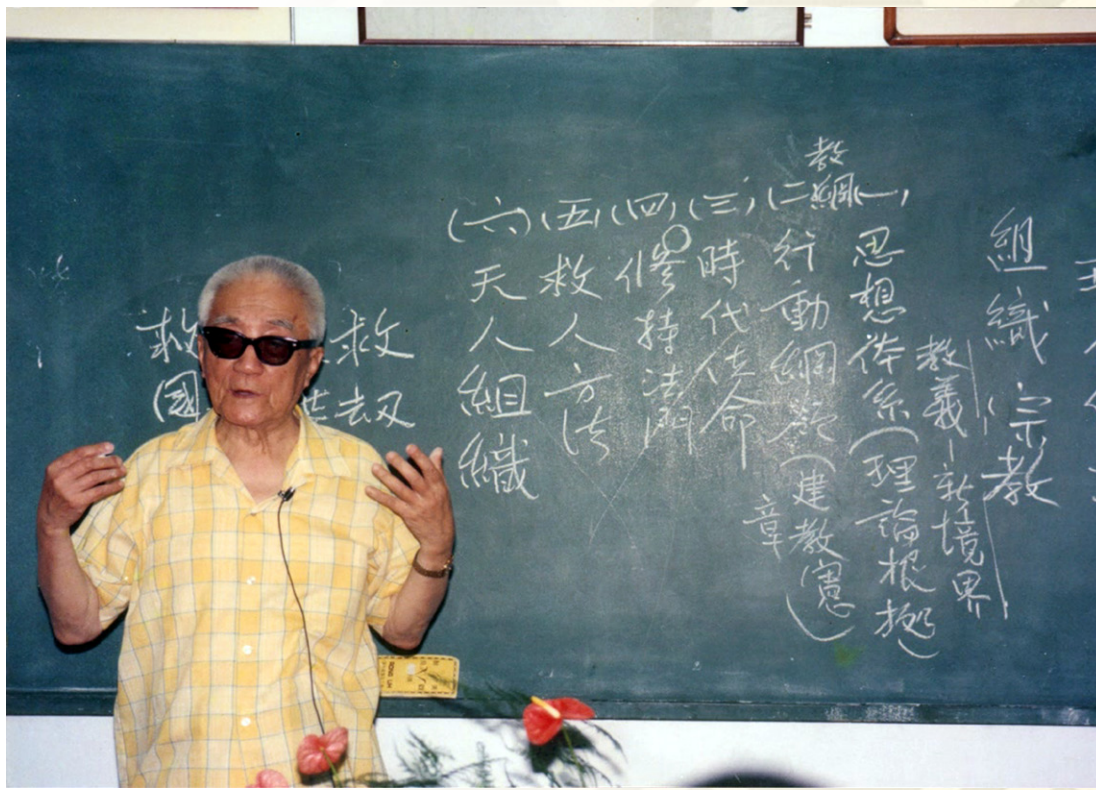 組織宗教
教義-新境界
(一)思想体系(理論根拠)
教綱
(二)行動綱領(建教憲章)
(三)時代使命
(四)修持法門
(五)救人方法
(六)天人組織
救劫
救國